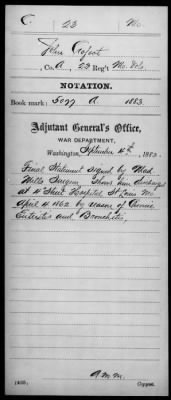 C. 23 Mo.
John
, Co. A, 23 Reg't Mo. Vols.
NOTATION.
Book mark: A 1883
Adjutant General's Office,
WAR DEPARTMENT,
Washington, September 4th, 1883.
Final Statement signed by Mad.
Mills Surgeon, Shows him discharged
at 4th Street Hospital St Louis Mo
April 4, 1862 by reason of Chronic
Enteritis and Bronchitis.
Copyist.